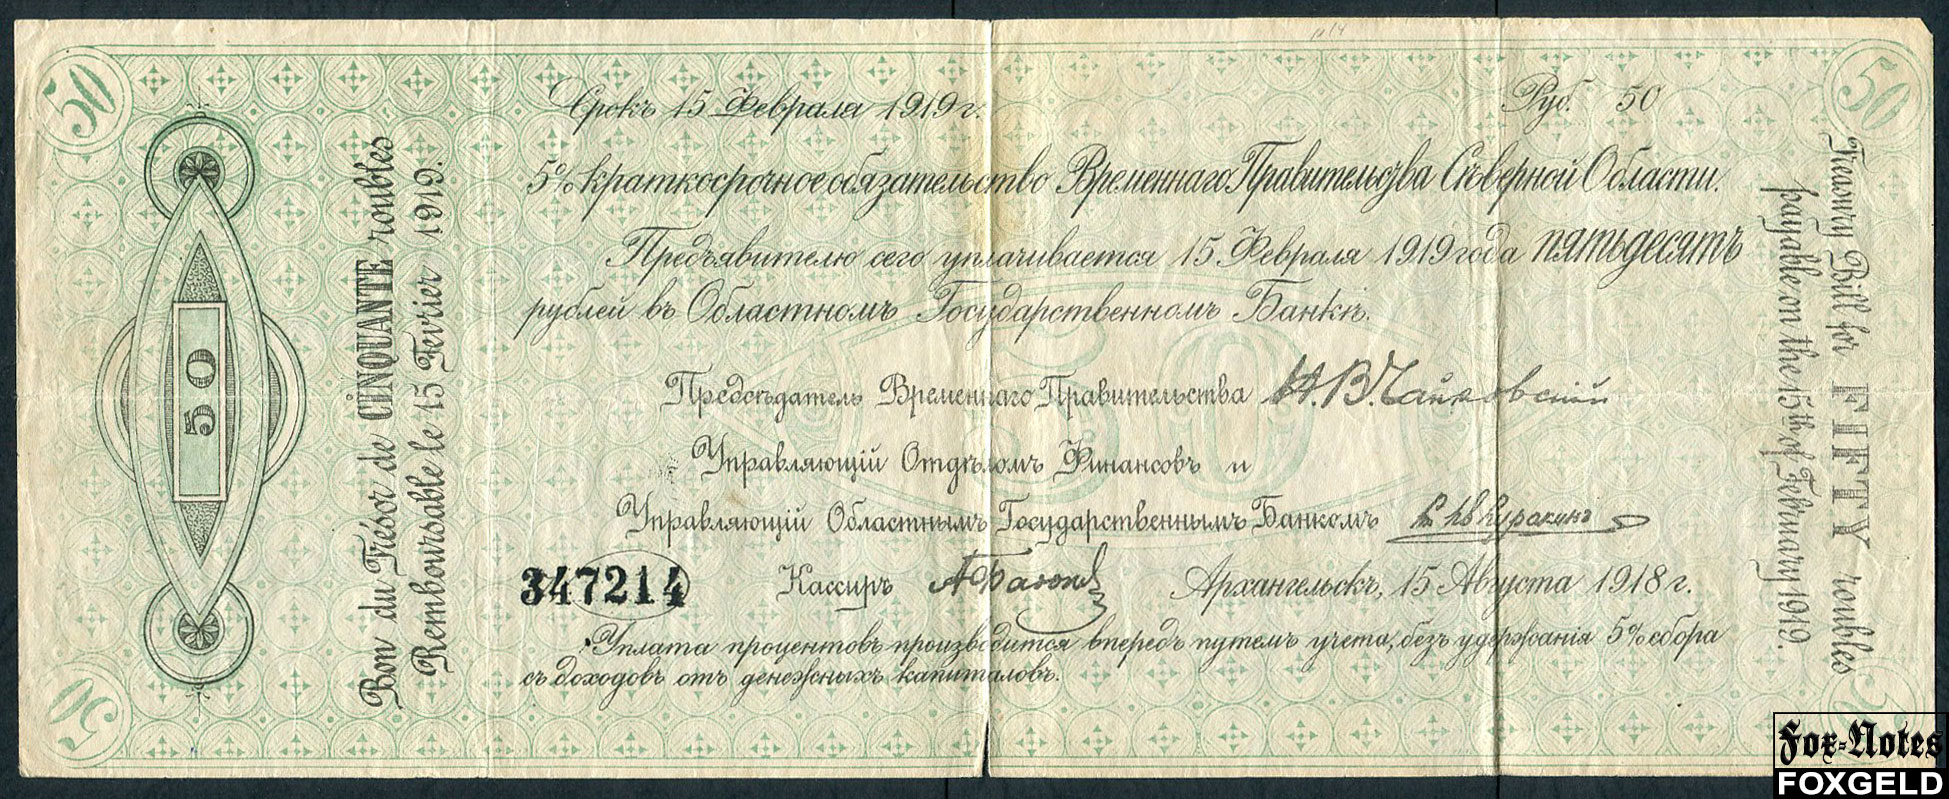 50
50
Срокъ 15 Февраля 1919 г.
Руб. 50
5% краткосрочное обязательство Временнаго Правительства Сѣверной Области.
Предъявителю сего уплачивается 15 Февраля 1919 года пятьдесятъ
рублей въ Областномъ Государственномъ Банкѣ.
Предсѣдатель Временнаго Правительства Н. В. Чайковскій
Управляющій Отдѣломъ Финансовъ и
Управляющій Областнымъ Государственнымъ Банкомъ
347214
Кассиръ
Архангельскъ, 15 Августа 1918 г.
Уплата процентовъ производится впередъ путемъ учета, безъ удержанія 5% сбора
съ доходовъ отъ денежныхъ капиталовъ.
50
50
Bon du Trésor de CINQUANTE roubles
Remboursable le 15 Fevrier 1919.
Treasury Bill for FIFTY roubles
payable on the 15th of February 1919.
50
Fox-Notes
FOXGELD